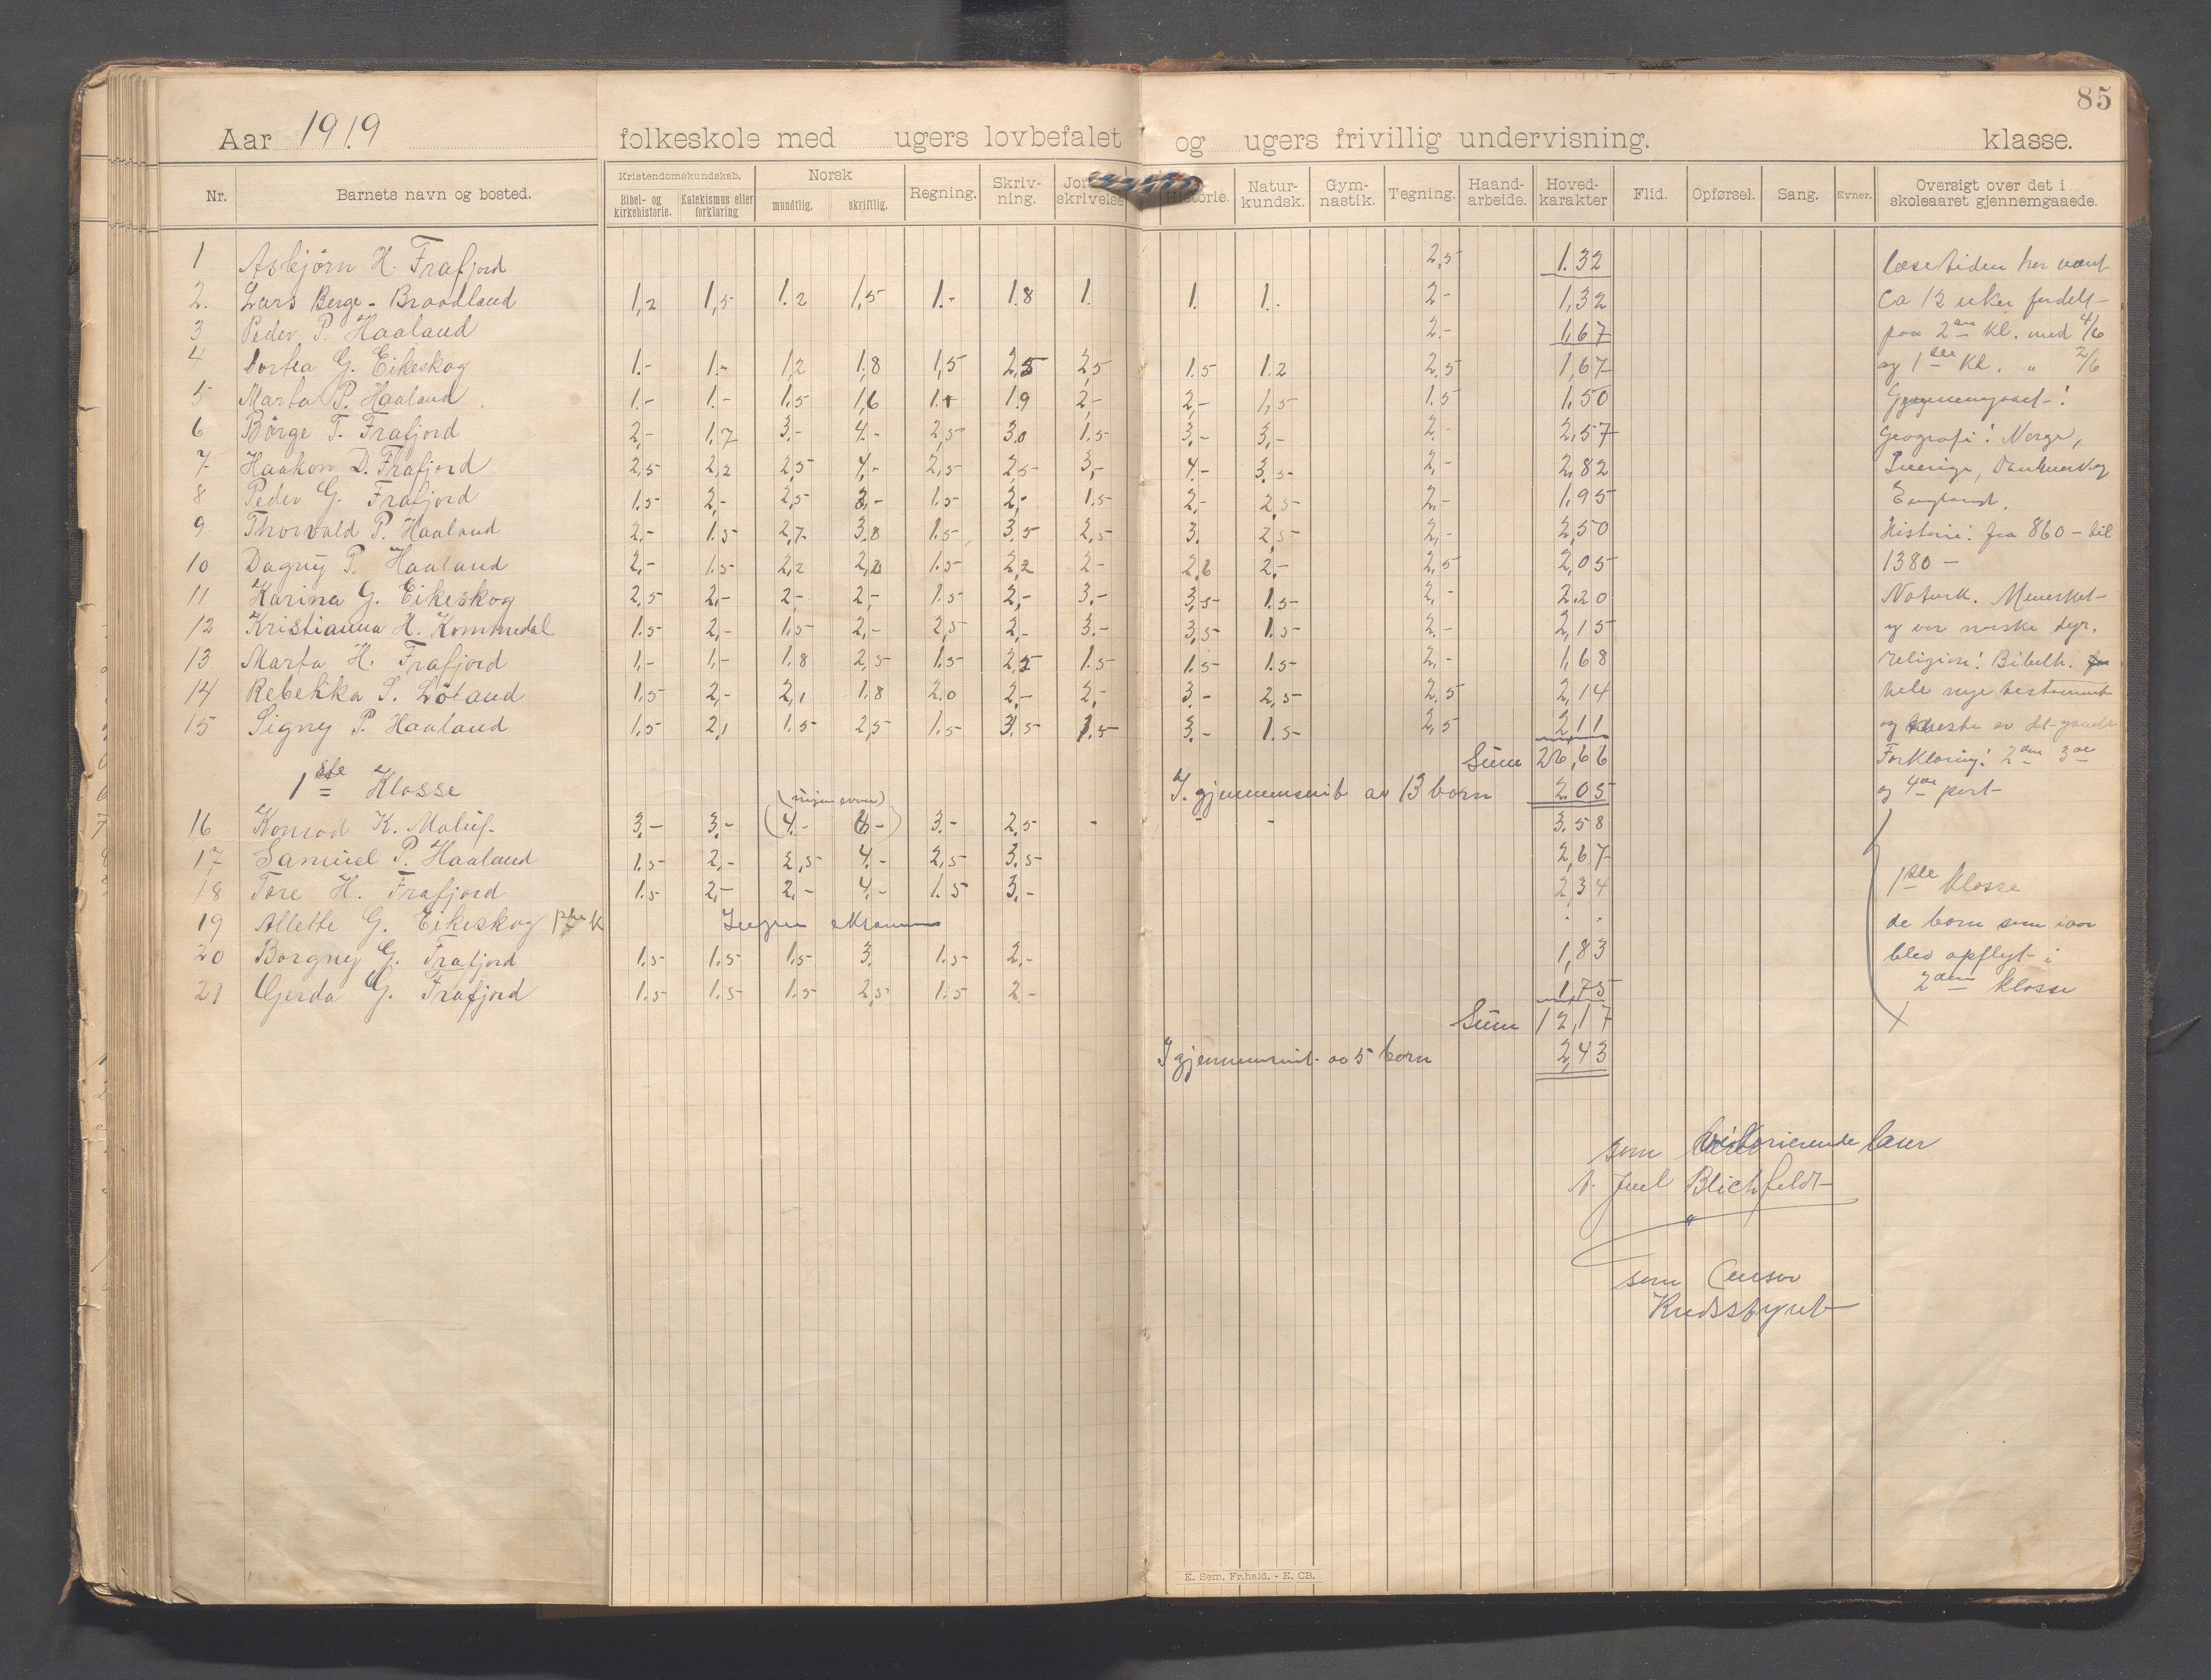 85
Aar 1919 folkeskole med ugers lovbefalet og ugers frivillig undervisning. klasse.
Nr. Barnets navn og bosted. Kristendomskundskab. Bibel- og kirkehistorie. Katekismus eller forklaring Norsk mundtlig. skriftlig. Regning. Skriv-ning. Jor skrivelse Historie. Natur-kundsk. Gym-nastik. Tegning. Haand-arbeide. Hoved-karakter Flid. Opførsel. Sang. Evner. Oversigt over det i skoleaaret gjennemgaaede.
1 Asbjörn H. Frafjord 2,5 1.32 læsetiden har vært
2. Lars Berge - Braadland 1,2 1,5 1.2 1,5 1.- 1.8 1. 1. 1.- 2- 1,32 Ca 12 uker fordelt
3 Peder P. Haaland 2.- 1,67 paa 2en Kl. med 4/6
4 Dortea G. Eikeskog 1.- 1.- 1,2 1,8 1,5 2,5 2,5 1.5 1.2 2.5 1,67 og 1ste Kl. " 2/6
5 Marta P. Haaland 1.- 1.- 1.5 1,6 1.- 1.9 2,- 2,- 1,5 1.5 1,50
6 Börge T. Frafjord 2,- 1.7 3.- 4.- 2,5 3.0 1.5 3.- 3,- 2.- 2,57 Geografi: Norge,
7 Haakon D. Frafjord 2,5 2,2 2,5 4,- 2,5 2,5 3,- 4.- 3.5 2,- 2,82 Sverige, Danmark og
8 Peder G. Frafjord 1.5 2,- 2,5 3,- 1.5 2,- 1.5 2,- 2,5 2,- 1,95 England.
9 Thorvald P. Haaland 2,- 1.5 2,7 3.8 1.5 3.5 2,5 3. 2,5 2,- 2,50 Historie: fra 860 - til
10 Dagny P. Haaland 2,- 1.5 2,2 2,2 1.5 2,2 2- 2,6 2,- 2,5 2,05 1380 -
11 Karina G. Eikeskog 2,5 2,- 2,- 2,- 1.5 2,- 3.- 3,5 1.5 2,- 2.20 Naturk. Mennesket
12 Kristianna H. Kommedal 1.5 2,- 1.5 2,- 2,5 2,- 3.- 3,5 1.5 2,- 2,15 og vor norske dyr.
13 Marta H. Frafjord 1,- 1,- 1.8 2,5 1.5 2,5 1.5 1.5 1.5 2,- 1,68 religion: Bibelh.
14 Rebekka S. Löland 1.5 2,- 2,1 1.8 2.0 2,- 2,- 3.- 2,5 2,5 2,14 hele nye testament
15 Signy P. Haaland 1.5 2,1 1.5 2,5 1.5 3.5 1.5 3.- 1.5 2,5 2,11
Sum 26,66 Forklaring: 2den 3de
1ste Klasse I. gjennemsnit av 13 born 2.05 og 4de part
(ingen evner)
16 Konrad K. Maluf. 3,- 3,- (4.- 6-) 3.- 2,5 - - - 3.58
17 Samuel P. Haaland 1.5 2,- 2,5 4.- 2,5 3.5 2,67
18 Tore H. Frafjord 1.5 2,- 2,- 4,- 1.5 3,- 2,34 1ste klasse
19 Allette G. Eikeskog Ingen eksamen de born som iaar
20 Borgny G. Frafjord 1.5 1.5 1.5 3. 1.5 2,- 1,83 blev opflyt i
21 Gerda G. Frafjord 1.5 1.5 1.5 2,5 1.5 2.- 1,75 2den klasse
Sum 12,17
I gjennemsnit av 5 born 2,43
som lærer
Juel Blichfeldt
som Censor
Kredsstyret
E. Sem, Fr.hald. - E. CB.